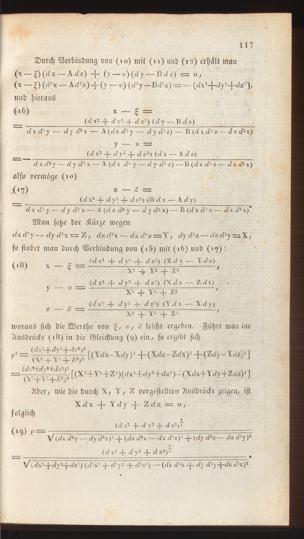 117
Durch Verbindung von (10) mit (11) und (12) erhält man
(x − ξ)(dx − Adz) + (y − υ)(dy − Bdz) = 0,
(x − ξ)(d²x − Ad²z) + (y − υ)(d²y − Bd²z) = −(dx² + dy² + dz²),
und hieraus
(16) x − ξ =
= (dx² + dy² + dz²)(dy − Bdz) / dx d²y − dy d²x − A(dz d²y − dy d²z) − B(dx d²z − dz d²x)
y − υ =
= − (dx² + dy² + dz²)(dx − Adz) / dx d²y − dy d²x − A(dz d²y − dy d²z) − B(dx d²z − dz d²x)
also vermöge (10)
(17) z − ζ =
= (dx² + dy² + dz²)(Bdx − Ady) / dx d²y − dy d²x − A(dz d²y − dy d²z) − B(dx d²z − dz d²x).
Man setze der Kürze wegen
dx d²y − dy d²x = Z, dz d²x − dx d²z = Y, dy d²z − dz d²y = X,
so findet man durch Verbindung von (15) mit (16) und (17):
(18) x − ξ = (dx² + dy² + dz²)(Zdy − Ydz) / X² + Y² + Z²,
y − υ = (dx² + dy² + dz²)(Xdz − Zdx) / X² + Y² + Z²,
z − ζ = (dx² + dy² + dz²)(Ydx − Xdy) / X² + Y² + Z²,
woraus sich die Werthe von ξ, υ, ζ leicht ergeben. Führt man die
Ausdrücke (18) in die Gleichung (9) ein, so ergibt sich
ρ² = (dx² + dy² + dz²)² / (X² + Y² + Z²)² [(Ydx − Xdy)² + (Xdz − Zdx)² + (Zdy − Ydz)²]
= (dx² + dy² + dz²)² / (X² + Y² + Z²)² [(X² + Y² + Z²)(dx² + dy² + dz²) − (Xdx + Ydy + Zdz)²]
Aber, wie die durch X, Y, Z vorgestellten Ausdrücke zeigen, ist
Xdx + Ydy + Zdz = 0,
folglich
(19) ρ = (dx² + dy² + dz²)^3/2 / √(dx d²y − dy d²x)² + (dz d²x − dx d²z)² + (dy d²z − dz d²y)²
= (dx² + dy² + dz²)^3/2 / √(dx² + dy² + dz²)(d²x² + d²y² + d²z²) − (dx d²x + dy d²y + dz d²z)².